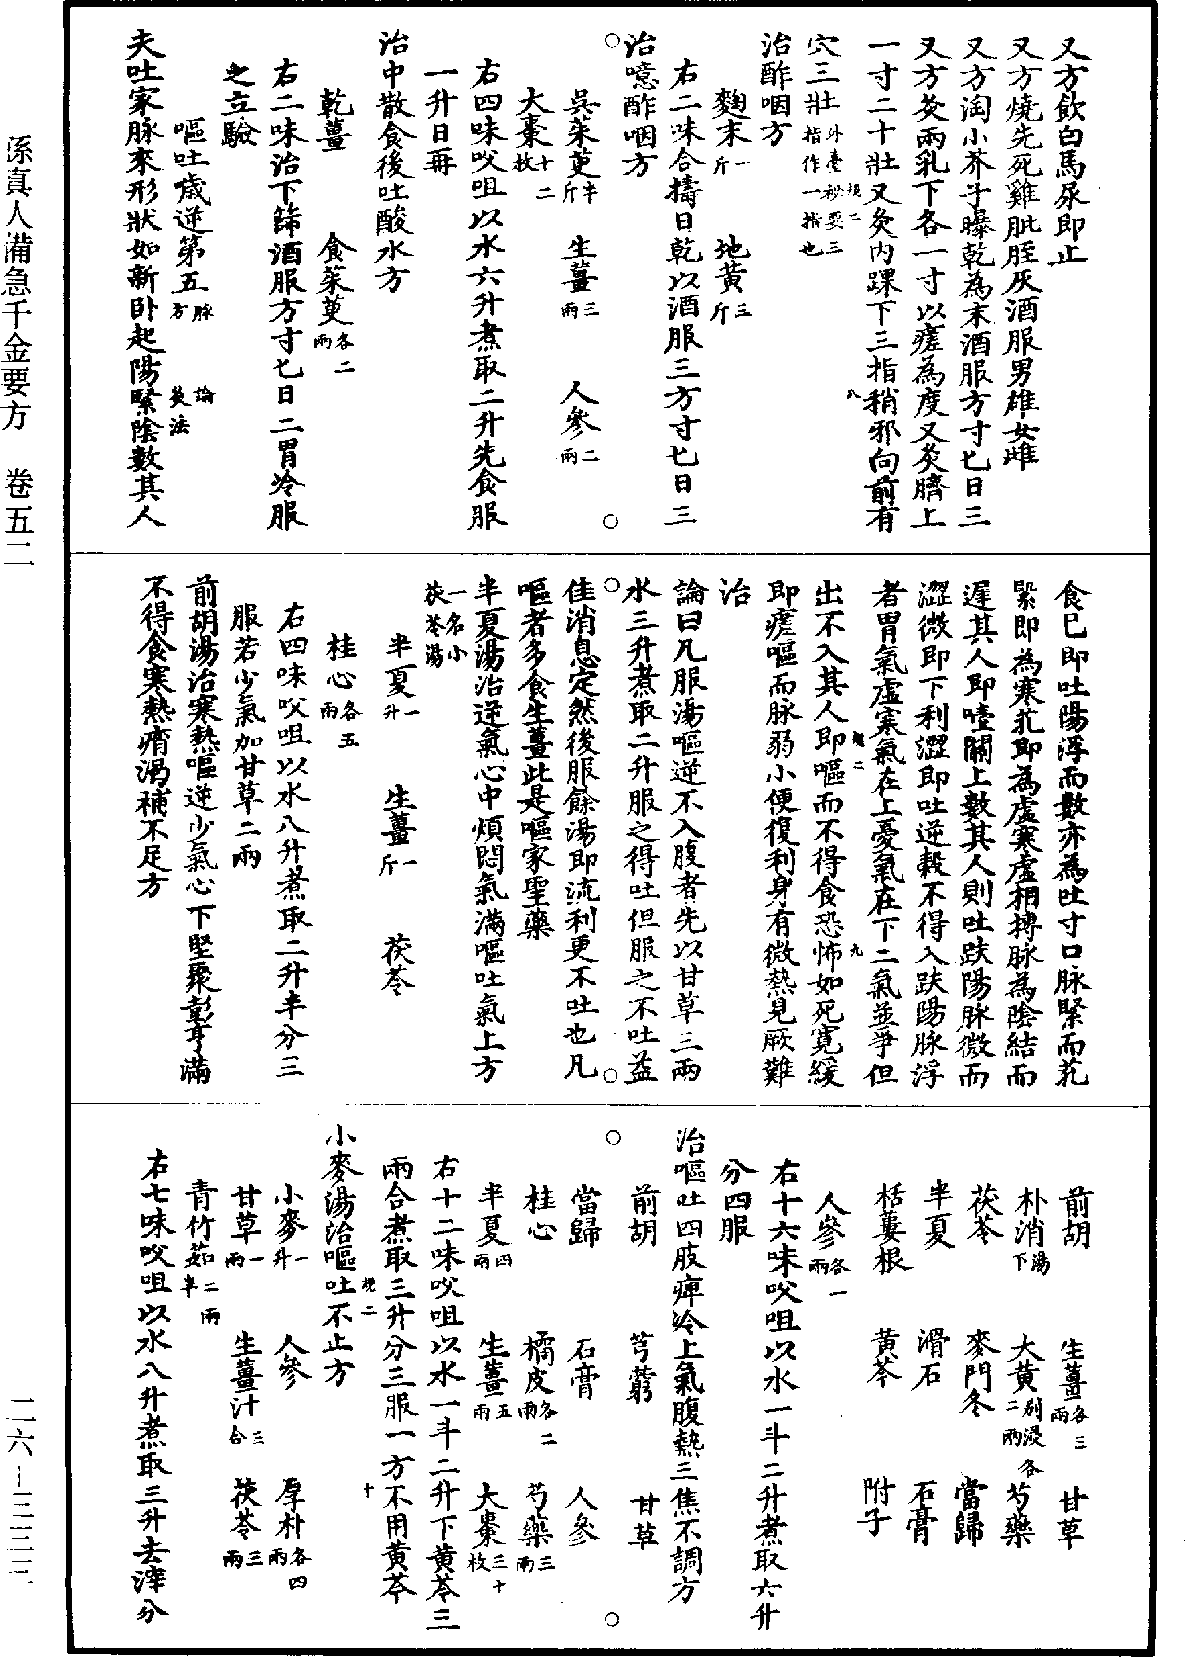 又方飲白馬尿即止
又方燒先死雞肶胵灰酒服男雄女雌
又方淘小芥子曝乾為末酒服方寸匕日三
又方灸兩乳下各一寸以瘥為度又灸臍上
一寸二十壯又灸內踝下三指稍邪向前有
穴三壯外臺秘要三指作一指也
規二
八
治酢咽方
麴末一斤 地黃三斤
右二味合擣日乾以酒服三方寸匕日三
治噫酢咽方
吳茱萸半斤 生薑三兩 人參二兩
大棗十二枚
右四味㕮咀以水六升煮取二升先食服
一升日再
治中散食後吐酸水方
乾薑 食茱萸各二兩
右二味治下篩酒服方寸匕日二胃冷服
之立驗
嘔吐噦逆第五脉方論灸法
夫吐家脉來形狀如新臥起陽緊陰數其人
食已即吐陽浮而數亦為吐寸口脉緊而芤
緊即為寒芤即為虛寒虛相搏脉為陰結而
遲其人即噎關上數其人則吐趺陽脉微而
澀微即下利澀即吐逆穀不得入趺陽脉浮
者胃氣虛寒氣在上憂氣在下二氣並爭但
出不入其人即嘔而不得食恐怖如死寬緩
規二
九
即瘥嘔而脉弱小便復利身有微熱見厥難
治
論曰凡服湯嘔逆不入腹者先以甘草三兩
水三升煮取二升服之得吐但服之不吐益
佳消息定然後服餘湯即流利更不吐也凡
嘔者多食生薑此是嘔家聖藥
半夏湯治逆氣心中煩悶氣滿嘔吐氣上方
一名小茯苓湯
半夏一升 生薑一斤 茯苓
桂心各五兩
右四味㕮咀以水八升煮取二升半分三
服若少氣加甘草二兩
前胡湯治寒熱嘔逆少氣心下堅聚彭亨滿
不得食寒熱痟渴補不足方
前胡 生薑各三兩 甘草
朴消湯下 大黃別浸各二兩 芍藥
茯苓 麥門冬 當歸
半夏 滑石 石膏
栝蔞根 黃芩 附子
人參各一兩
右十六味㕮咀以水一斗二升煮取六升
分四服
治嘔吐四肢痺冷上氣腹熱三焦不調方
前胡 芎藭 甘草
當歸 石膏 人參
桂心 橘皮各二兩 芍藥三兩
半夏四兩 生薑五兩 大棗三十枚
右十二味㕮咀以水一斗二升下黃芩三
兩合煮取三升分三服一方不用黃芩
規二
十
小麥湯治嘔吐不止方
小麥一升 人參 厚朴各四兩
甘草一兩 生薑汁三合 茯苓三兩
青竹茹二兩半
右七味㕮咀以水八升煮取三升去滓分
孫真人備急千金要方 卷五二
二六—三三三